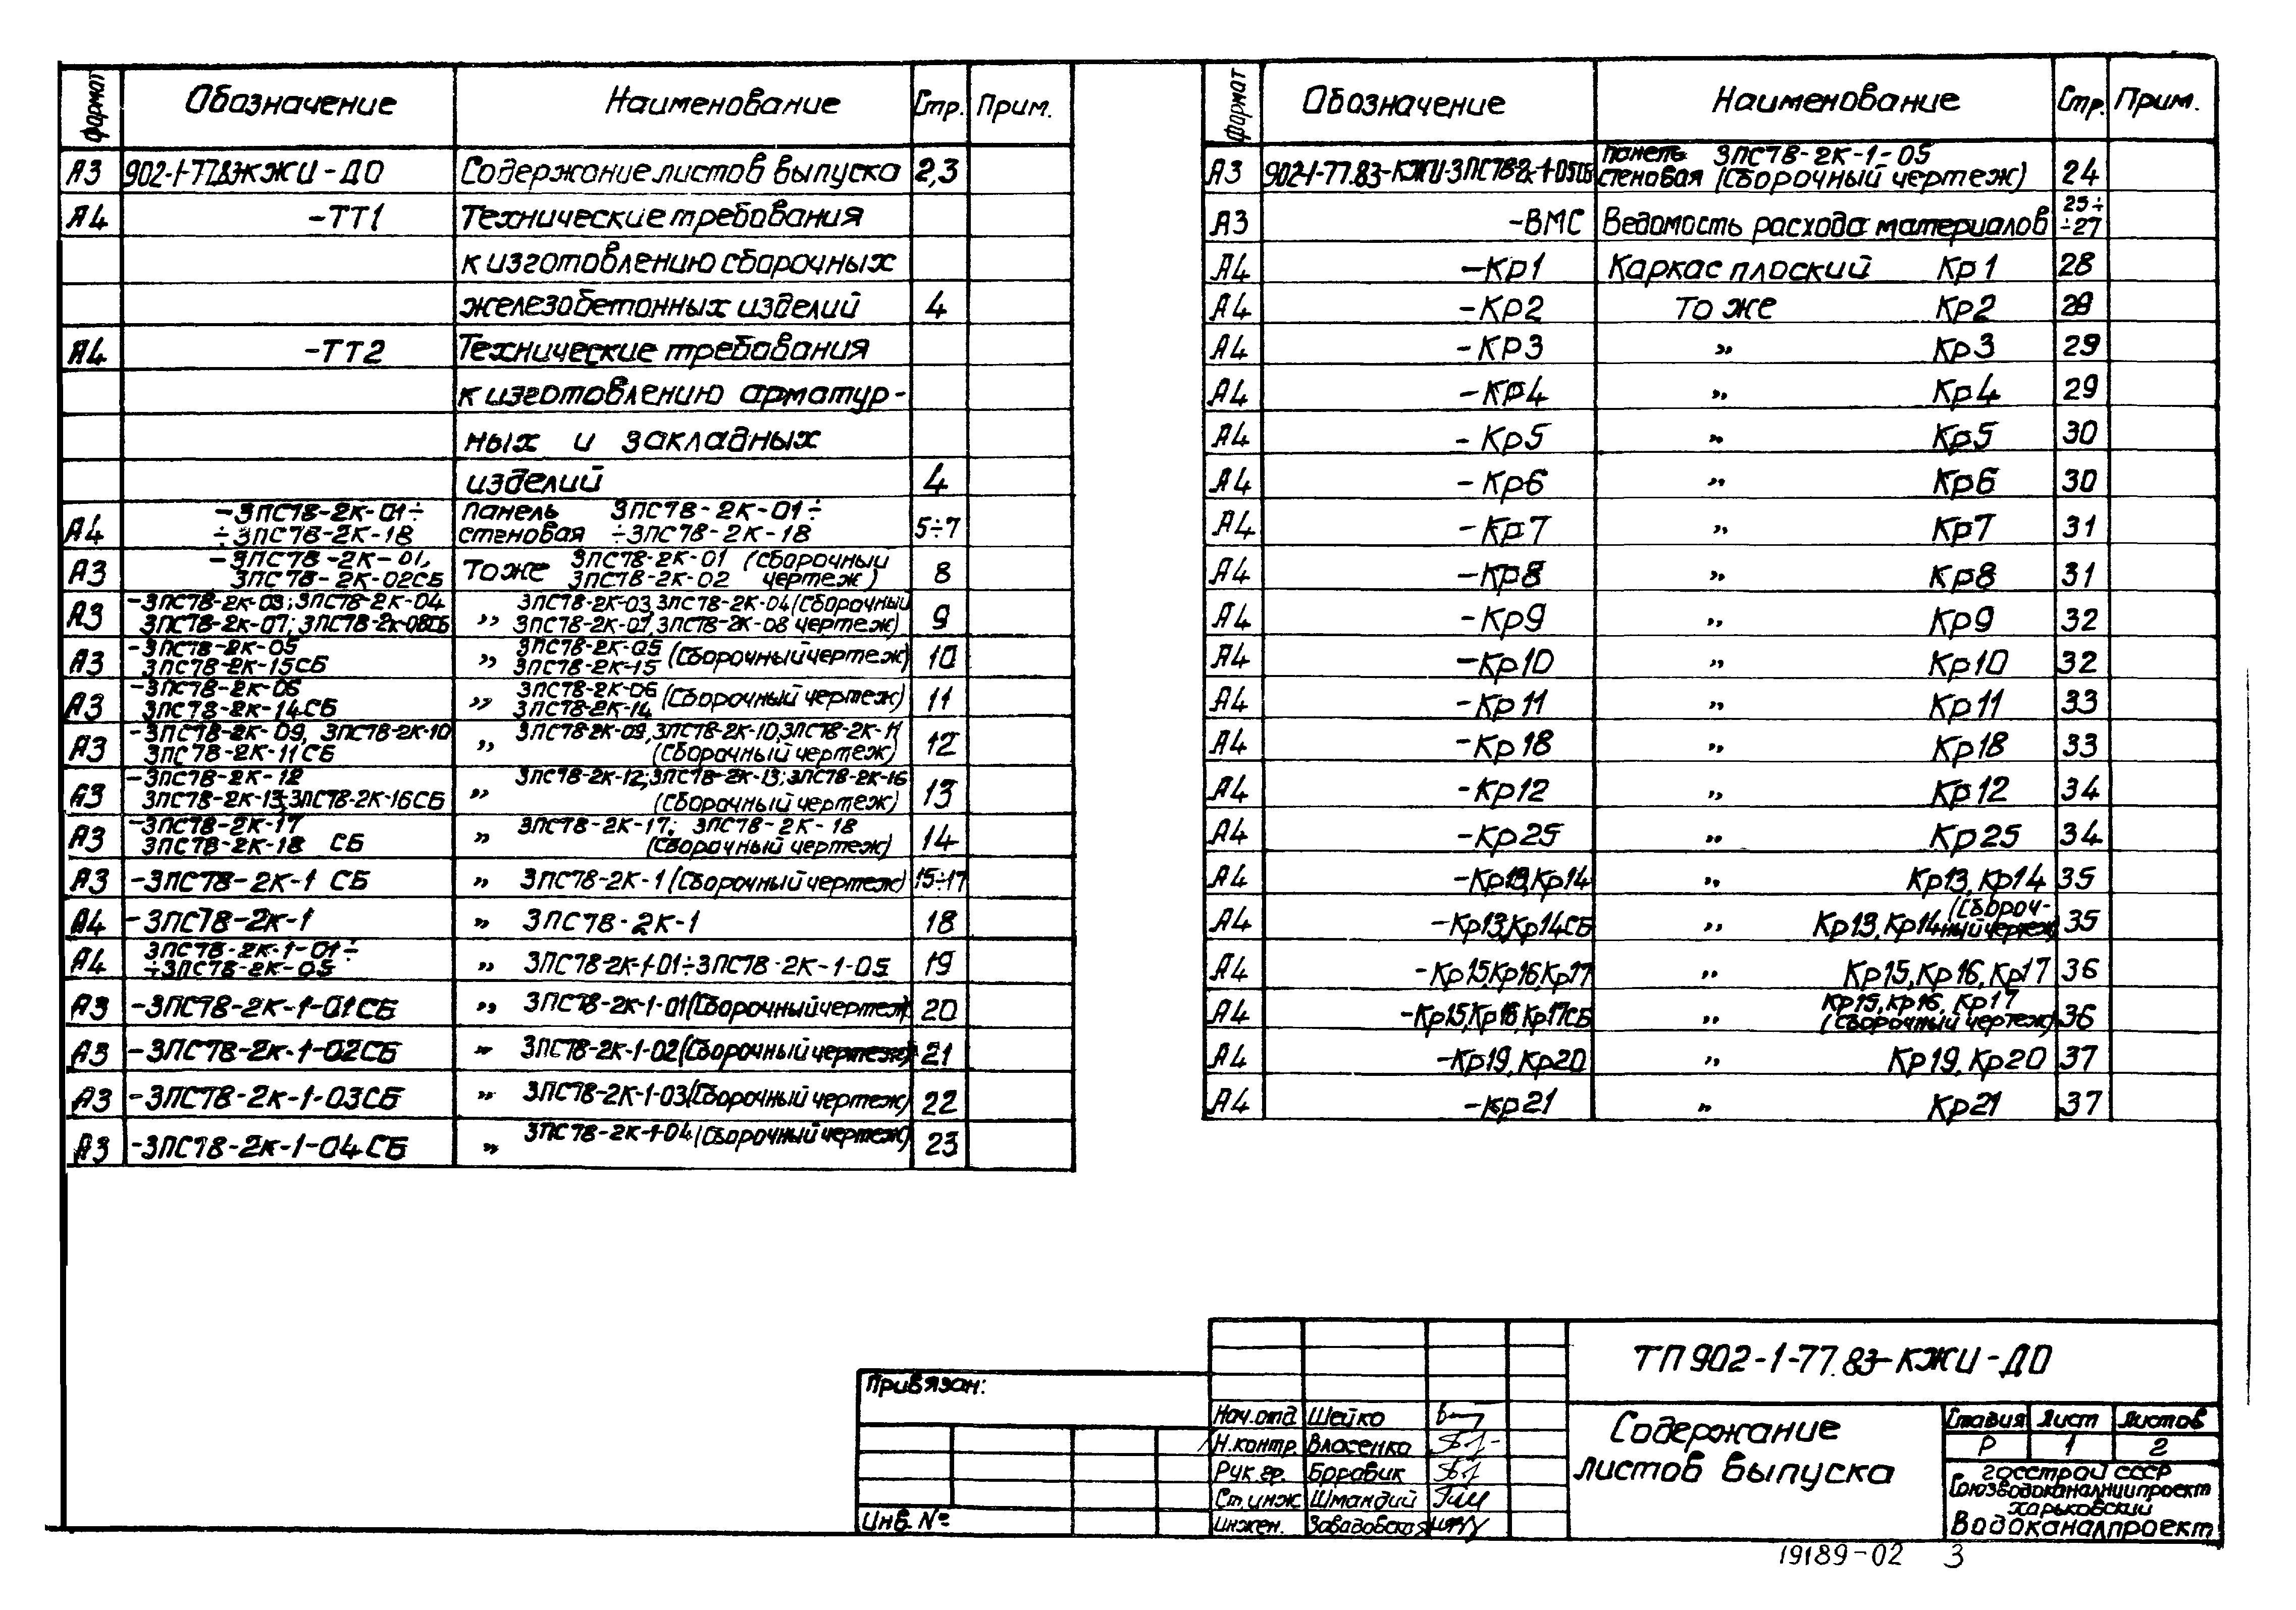 формат Обозначение Наименование Стр. Прим.
А3 902-1-77.83-КЖИ-ДО Содержание листов выпуска 2,3
А4 -ТТ1 Технические требования
к изготовлению сборочных
железобетонных изделий 4
А4 -ТТ2 Технические требования
к изготовлению арматур-
ных и закладных
изделий 4
А4 -3ПС78-2К-01÷ ÷3ПС78-2К-18 панель стеновая 3ПС78-2К-01÷ ÷3ПС78-2К-18 5÷7
А3 -3ПС78-2К-01, 3ПС78-2К-02СБ То же 3ПС78-2К-01 3ПС78-2К-02 (Сборочный чертеж) 8
А3 -3ПС78-2К-03; 3ПС78-2К-04 3ПС78-2К-07; 3ПС78-2К-08СБ „ 3ПС78-2К-03, 3ПС78-2К-04 3ПС78-2К-07, 3ПС78-2К-08 (Сборочный чертеж) 9
А3 -3ПС78-2К-05 3ПС78-2К-15СБ „ 3ПС78-2К-05 3ПС78-2К-15 (Сборочный чертеж) 10
А3 -3ПС78-2К-06 3ПС78-2К-14СБ „ 3ПС78-2К-06 3ПС78-2К-14 (Сборочный чертеж) 11
А3 -3ПС78-2К-09, 3ПС78-2К-10 3ПС78-2К-11СБ „ 3ПС78-2К-09, 3ПС78-2К-10, 3ПС78-2К-11 (Сборочный чертеж) 12
А3 -3ПС78-2К-12 3ПС78-2К-13; 3ПС78-2К-16СБ „ 3ПС78-2К-12; 3ПС78-2К-13; 3ПС78-2К-16 (Сборочный чертеж) 13
А3 -3ПС78-2К-17 3ПС78-2К-18 СБ „ 3ПС78-2К-17; 3ПС78-2К-18 (Сборочный чертеж) 14
А3 -3ПС78-2К-1 СБ „ 3ПС78-2К-1 (Сборочный чертеж) 15÷17
А4 -3ПС78-2К-1 „ 3ПС78-2К-1 18
А4 3ПС78-2К-1-01÷ ÷3ПС78-2К-05 „ 3ПС78-2К-1-01÷3ПС78-2К-1-05 19
А3 -3ПС78-2К-1-01СБ „ 3ПС78-2К-1-01 (Сборочный чертеж) 20
А3 -3ПС78-2К-1-02СБ „ 3ПС78-2К-1-02 (Сборочный чертеж) 21
А3 -3ПС78-2К-1-03СБ „ 3ПС78-2К-1-03 (Сборочный чертеж) 22
А3 -3ПС78-2К-1-04СБ „ 3ПС78-2К-1-04 (Сборочный чертеж) 23
формат Обозначение Наименование Стр. Прим.
А3 902-1-77.83-КЖИ-3ПС78-2К-1-05СБ панель стеновая 3ПС78-2К-1-05 (Сборочный чертеж) 24
А3 -ВМС Ведомость расхода материалов 25÷ ÷27
А4 -Кр1 Каркас плоский Кр1 28
А4 -Кр2 то же Кр2 28
А4 -КР3 „ Кр3 29
А4 -Кр4 „ Кр4 29
А4 -Кр5 „ Кр5 30
А4 -Кр6 „ Кр6 30
А4 -Кр7 „ Кр7 31
А4 -Кр8 „ Кр8 31
А4 -Кр9 „ Кр9 32
А4 -Кр10 „ Кр10 32
А4 -Кр11 „ Кр11 33
А4 -Кр18 „ Кр18 33
А4 -Кр12 „ Кр12 34
А4 -Кр25 „ Кр25 34
А4 -Кр13, Кр14 „ Кр13, Кр14 35
А4 -Кр13, Кр14СБ „ Кр13, Кр14 (Сбороч-ный чертеж) 35
А4 -Кр15, Кр16, Кр17 „ Кр15, Кр16, Кр17 36
А4 -Кр15, Кр16, Кр17СБ „ Кр15, Кр16, Кр17 (Сборочный чертеж) 36
А4 -Кр19, Кр20 „ Кр19, Кр20 37
А4 -Кр21 „ Кр21 37
Привязан:
Инв. №
Нач.отд Шейко
Н.контр. Власенко
Рук.гр. Боровик
Ст.инж Шмандий
Инжен. Завадовская
ТП 902-1-77.83-КЖИ-ДО
Содержание
листов выпуска
Стадия Лист Листов
Р 1 2
госстрой СССР
Союзводоканалниипроект
харьковский
Водоканалпроект
19189-02 3